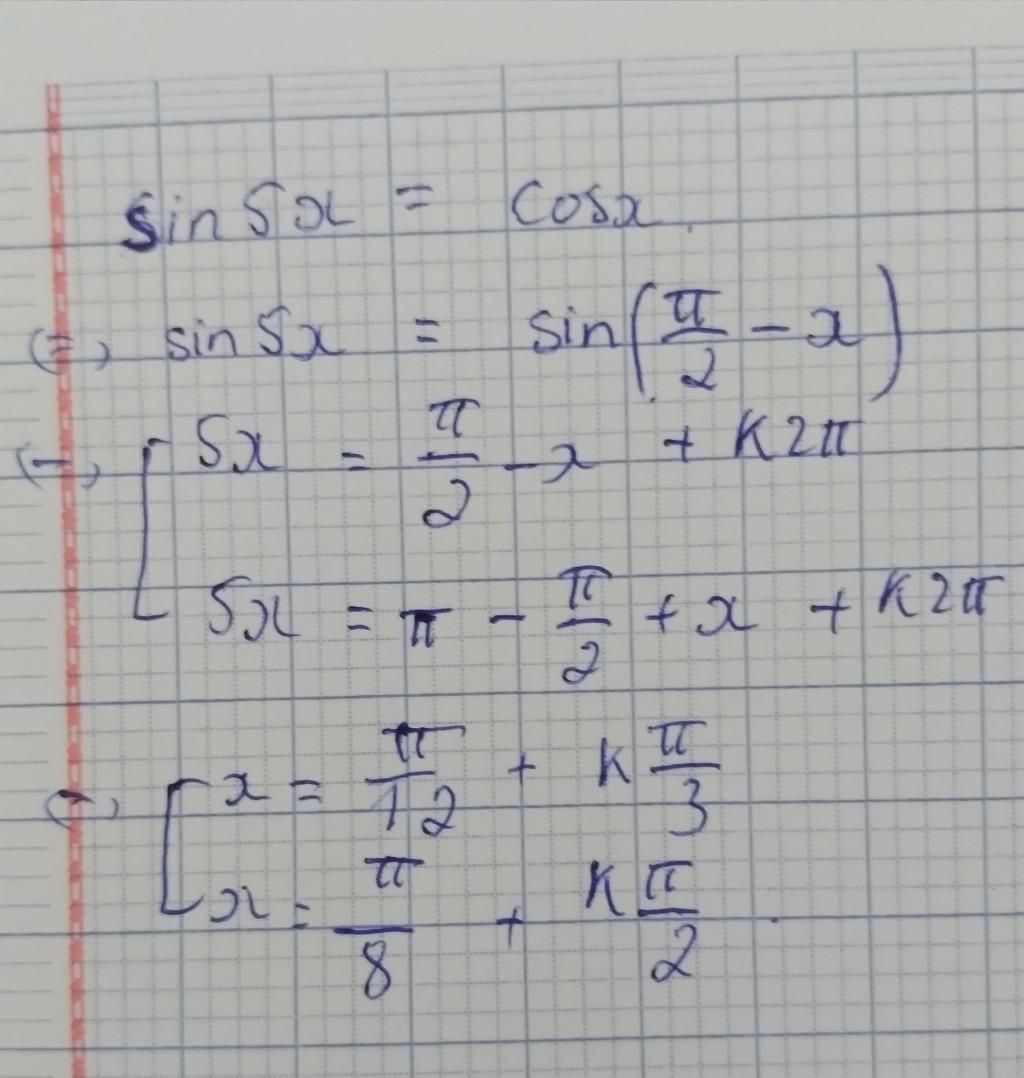 sin 5x = cosx.
(=) sin 5x = sin(π/2 - x)
(=) [ 5x = π/2 - x + k2π
5x = π - π/2 + x + k2π
(=) [ x = π/12 + k π/3
x = π/8 + k π/2 .